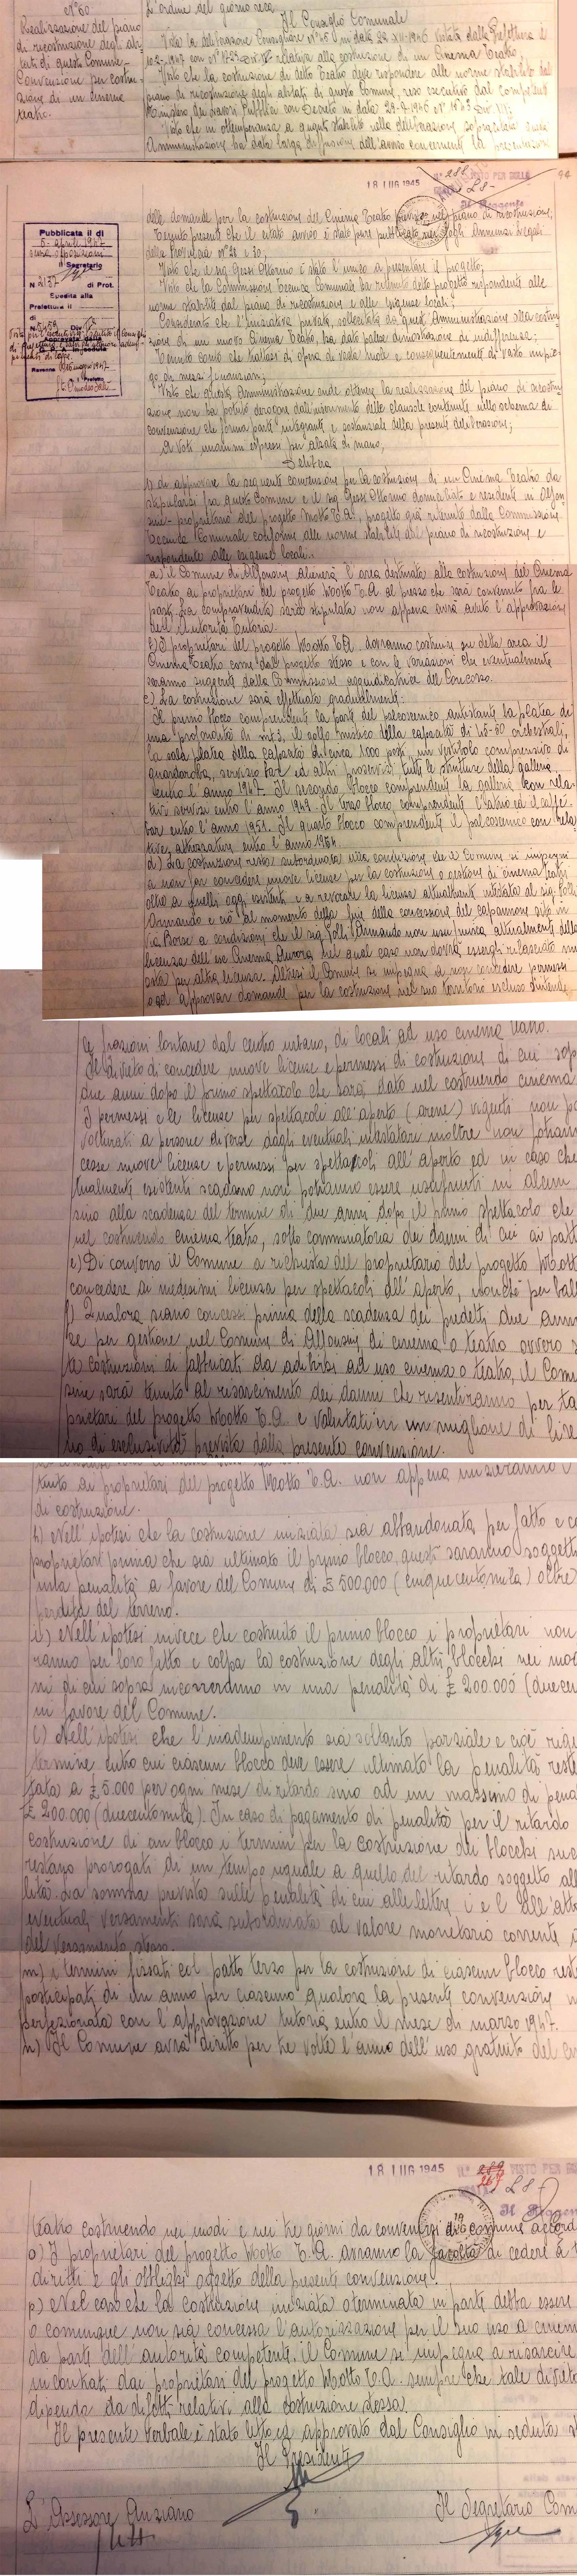 N° 60
Realizzazione del piano
di ricostruzione degli abi-
tati di questo Comune -
Convenzione per costru-
zione di un cinema
teatro.
L'ordine del giorno reca
Il Consiglio Comunale
Vista la deliberazione Consigliare N° 45 in data 22 XII-1946 vistata dalla Prefettura il
relativa alla costruzione di un Cinema Teatro.
Visto che la costruzione di detto Teatro deve rispondere alle norme stabilite dal
piano di ricostruzione degli abitati di questo Comune, reso esecutivo dal competente
Ministero dei Lavori Pubblici con Decreto in data 28-9-1946 N° 1893 Div. 17;
Visto che in ottemperanza a quanto stabilito nella deliberazione sopracitata questa
Amministrazione ha data larga diffusione dell'avviso concernente la presentazione
18 LUG 1945
94
delle domande per la costruzione del Cinema Teatro previsto nel piano di ricostruzione;
Tenuto presente che il citato avviso è stato pure pubblicato nei Fogli Annunzi Legali
della Provincia N° 28 e 30;
Visto che il sig. Gessi Ottorino è stato l'unico a presentare il progetto;
Visto che la Commissione Tecnica Comunale ha ritenuto detto progetto rispondente alle
norme stabilite dal piano di ricostruzione e alle esigenze locali;
Considerato che l'iniziativa privata, sollecitata da questa Amministrazione alla costru-
zione di un nuovo Cinema Teatro, ha dato palese dimostrazione di indifferenza;
Tenuto conto che trattasi di opera di vasta mole e conseguentemente di vasto impie-
go di mezzi finanziari;
Visto che questa Amministrazione onde ottenere la realizzazione del piano di ricostru-
zione non ha potuto derogare dall'inserimento delle clausole contenute nello schema di
convenzione che forma parte integrante e sostanziale della presente deliberazione;
A voti unanimi espressi per alzata di mano,
Delibera
Pubblicata il dì
6 - aprile 1947
senza opposizioni
Il Segretario
N 2137 di Prot.
Spedita alla
Prefettura il
di
N Div
Approvata dalla
G. P. A. in seduta
Ravenna
Il Prefetto
1) di approvare la seguente convenzione per la costruzione di un Cinema Teatro da
stipularsi fra questo Comune e il sig. Gessi Ottorino domiciliato e residente in Alfon-
sine - proprietario del progetto Motto T.A., progetto già ritenuto dalla Commissione
Tecnica Comunale conforme alle norme stabilite dal piano di ricostruzione e
rispondente alle esigenze locali:
a) il Comune di Alfonsine alienerà l'area destinata alla costruzione del Cinema
Teatro ai proprietari del progetto Motto T.A. al prezzo che sarà convenuto fra le
parti. La compravendita sarà stipulata non appena avrà avuto l'approvazione
dell'Autorità Tutoria.
b) I proprietari del progetto Motto T.A. dovranno costruire su detta area il
Cinema Teatro come dal progetto stesso e con le variazioni che eventualmente
saranno suggerite dalla Commissione aggiudicatrice del Concorso.
c) La costruzione sarà effettuata gradualmente:
Il primo blocco comprendente la parte del palcoscenico, antistante la platea di
una profondità di mt. 3, il golfo mistico della capacità di 45-50 orchestrali,
la sala platea della capacità di circa 1000 posti, un vestibolo comprensivo di
guardaroba, servizio bar ed altri provvisori, tutte le strutture della galleria
entro l'anno 1947. Il secondo blocco comprendente la galleria con rela-
tivi servizi entro l'anno 1949. Il terzo blocco comprendente l'atrio ed il caffè
bar entro l'anno 1951. Il quarto blocco comprendente il palcoscenico con rela-
tive attrezzature entro l'anno 1954.
d) La costruzione resta subordinata alla condizione che il Comune si impegni
a non far concedere nuove licenze per la costruzione o gestione di cinema teatri
oltre a quelli oggi esistenti e a revocare la licenza attualmente intestata al sig. Folli
Armando e ciò al momento della fine della concessione del capannone sito in
Via Borse a condizioni che il sig. Folli Armando non usufruisca attualmente della
licenza dell'ex Cinema Aurora nel qual caso non dovrà essergli rilasciato nulla
osta per altra licenza. Altresì il Comune si impegna a non concedere permessi
o ad approvare domande per la costruzione nel suo territorio escluso s'intende
le frazioni lontane dal centro urbano, di locali ad uso cinema teatro.
Il divieto di concedere nuove licenze e permessi di costruzione di cui sop
due anni dopo il primo spettacolo che sarà dato nel costruendo cinema
I permessi e le licenze per spettacoli all'aperto (arene) vigenti non po
volturati a persone diverse dagli eventuali intestatari inoltre non potran
cesse nuove licenze e permessi per spettacoli all'aperto ed in caso che
tualmente esistenti scadano non potranno essere usufruiti in alcun
sino alla scadenza del termine di due anni dopo il primo spettacolo che
nel costruendo cinema teatro, sotto comminatoria dei danni di cui ai patti
e) Di converso il Comune a richiesta del proprietario del progetto Motto
concedere ai medesimi licenza per spettacoli all'aperto, nonchè per ball
f) Qualora siano concesse prima della scadenza dei predetti due anni
ze per gestione nel Comune di Alfonsine di cinema o teatro ovvero s
la costruzione di fabbricati da adibirsi ad uso cinema o teatro, il Com
sine sarà tenuto al risarcimento dei danni che risentiranno per ta
prietari del progetto Motto T.A. e valutati in un miglione di lire
no di esclusività prevista dalla presente convenzione.
tuito ai proprietari del progetto Motto T.A. non appena inizieranno i
di costruzione.
h) Nell'ipotesi che la costruzione iniziata sia abbandonata per fatto e co
proprietari prima che sia ultimato il primo blocco, questi saranno soggetti
una penalità a favore del Comune di £ 500.000 (cinquecentomila) oltre
perdita del terreno.
i) Nell'ipotesi invece che costruito il primo blocco i proprietari non
ranno per loro fatto e colpa la costruzione degli altri blocchi nei mo
ni di cui sopra incorreranno in una penalità di £ 200.000 (duecen
in favore del Comune.
l) Nell'ipotesi che l'inadempimento sia soltanto parziale e cioè rigu
termine entro cui ciascun blocco deve essere ultimato la penalità reste
tata a £ 5.000 per ogni mese di ritardo sino ad un massimo di pena
£ 200.000 (duecentomila). In caso di pagamento di penalità per il ritardo
costruzione di un blocco i termini per la costruzione dei blocchi succ
restano prorogati di un tempo uguale a quello del ritardo soggetto all
lità. La somma prevista sulle penalità di cui alle lettere i e l all'atto
eventuali versamenti sarà subordinata al valore monetario corrente a
del versamento stesso.
m) i termini fissati col patto terzo per la costruzione di ciascun blocco reste
posticipati di un anno per ciascuno qualora la presente convenzione n
perfezionata con l'approvazione tutoria entro il mese di marzo 1947.
n) Il Comune avrà diritto per tre volte l'anno dell'uso gratuito del cin
18 LUG 1945
teatro costruendo nei modi e nei tre giorni da convenirsi di comune accord
o) I proprietari del progetto Motto T.A. avranno la facoltà di cedere a t
diritti e gli obblighi oggetto della presente convenzione.
p) Nel caso che la costruzione iniziata o terminata in parte debba essere
o comunque non sia concessa l'autorizzazione per il suo uso a cinem
da parte dell'autorità competente il Comune si impegna a risarcire
incontrati dai proprietari del progetto Motto T.A. sempre che tale divieto
dipenda da difetti relativi alla costruzione stessa.
Il presente verbale è stato letto ed approvato dal Consiglio in seduta st
Il Presidente
L'Assessore Anziano
Il Segretario Com